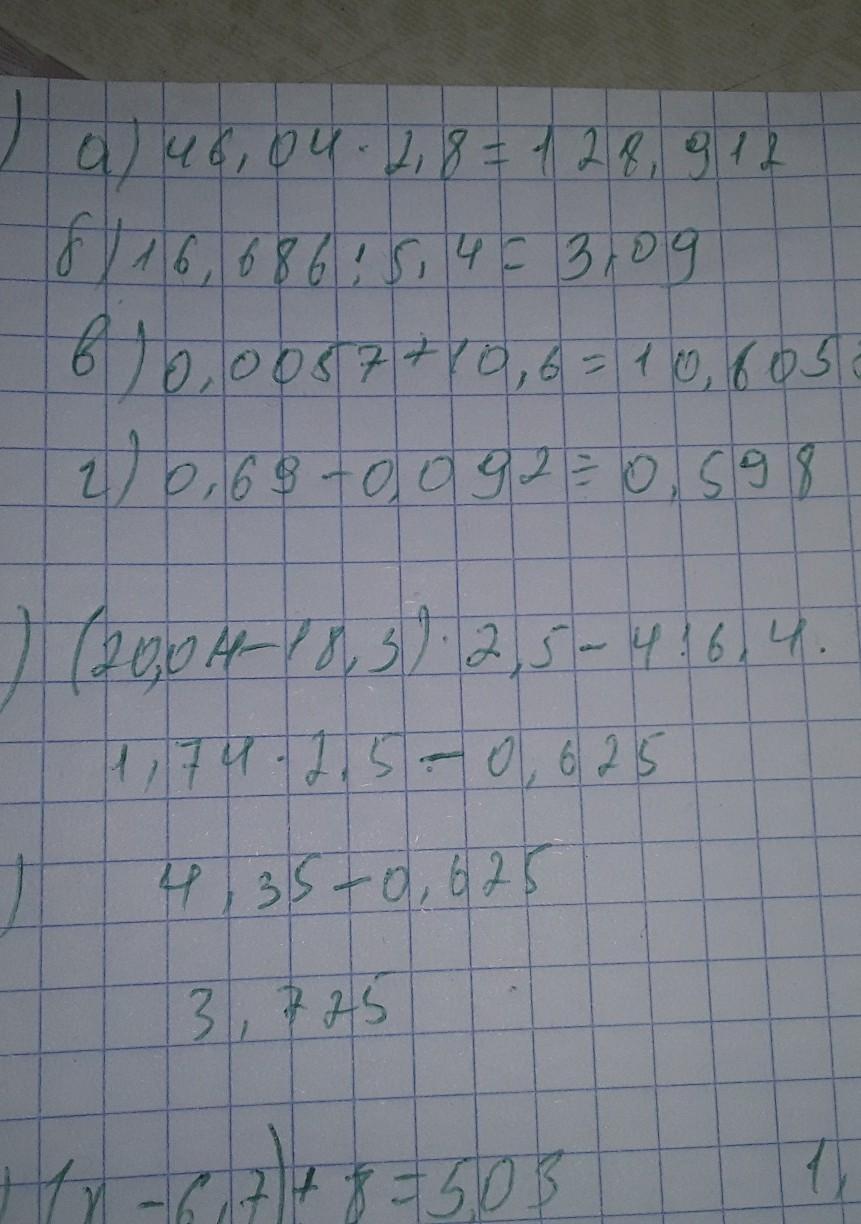 ) а) 46,04 · 2,8 = 128,912
б) 16,686 : 5,4 = 3,09
в) 0,0057 + 10,6 = 10,605
г) 0,69 - 0,092 = 0,598
) (20,04 - 18,3) · 2,5 - 4 : 6,4.
1,74 · 2,5 - 0,625
) 4,35 - 0,625
3,725
) (х - 6,7) + 8 = 5,03 1,